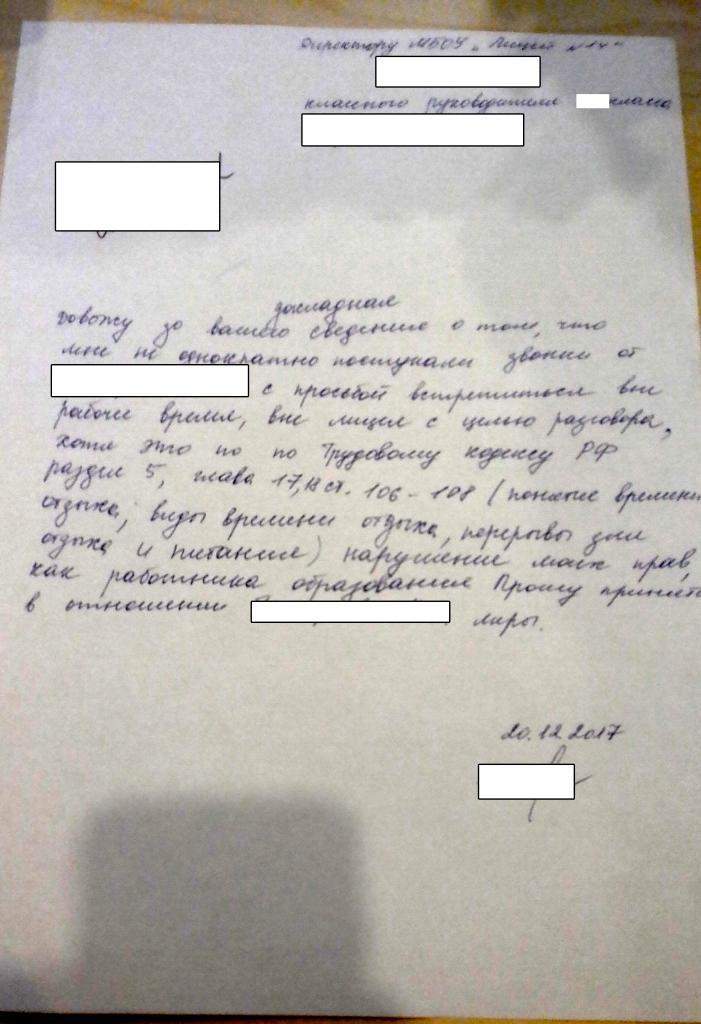 Директору МБОУ „Лицей №14"
классного руководителя класса
докладная
Довожу до вашего сведению о том, что
мне не однократно поступали звонки от
с просьбой встретиться вне
рабочее время, вне лицея с целью разговора,
хотя это по по Трудовому кодексу РФ
раздел 5, глава 17, ст. 106-108 (понятие времени
отдыха, виды времени отдыха, перерывы для
отдыха и питания) нарушение моих прав,
как работника образования Прошу принять
в отношении меры.
20.12.2017